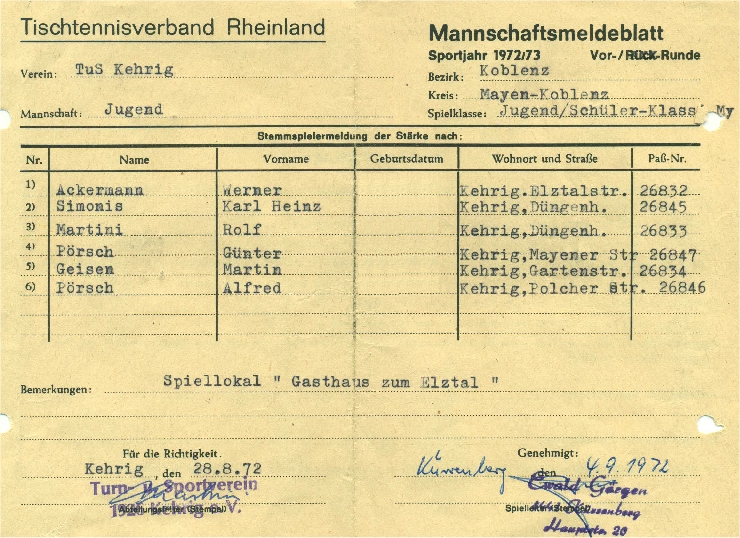 Tischtennisverband Rheinland
Mannschaftsmeldeblatt
Sportjahr 1972/73 Vor-/Rück-Runde
Verein: TuS Kehrig
Bezirk: Koblenz
Kreis: Mayen-Koblenz
Mannschaft: Jugend
Spielklasse: Jugend/Schüler-Klass My
Stammspielermeldung der Stärke nach:
Nr. Name Vorname Geburtsdatum Wohnort und Straße Paß-Nr.
1) Ackermann Werner Kehrig.Elztalstr. 26832
2) Simonis Karl Heinz Kehrig,Düngenh. 26845
3) Martini Rolf Kehrig,Düngenh. 26833
4) Pörsch Günter Kehrig,Mayener Str 26847
5) Geisen Martin Kehrig,Gartenstr. 26834
6) Pörsch Alfred Kehrig,Polcher Str. 26846
Bemerkungen: Spiellokal " Gasthaus zum Elztal "
Für die Richtigkeit.
Kehrig, den 28.8.72
Turn- u. Sportverein
Kehrig e. V.
Abteilungsleiter (Stempel)
Genehmigt:
Kürrenberg den 4.9.1972
Ewald Görgen
Kürrenberg
Spielleiter (Stempel)
Hauptstr. 20